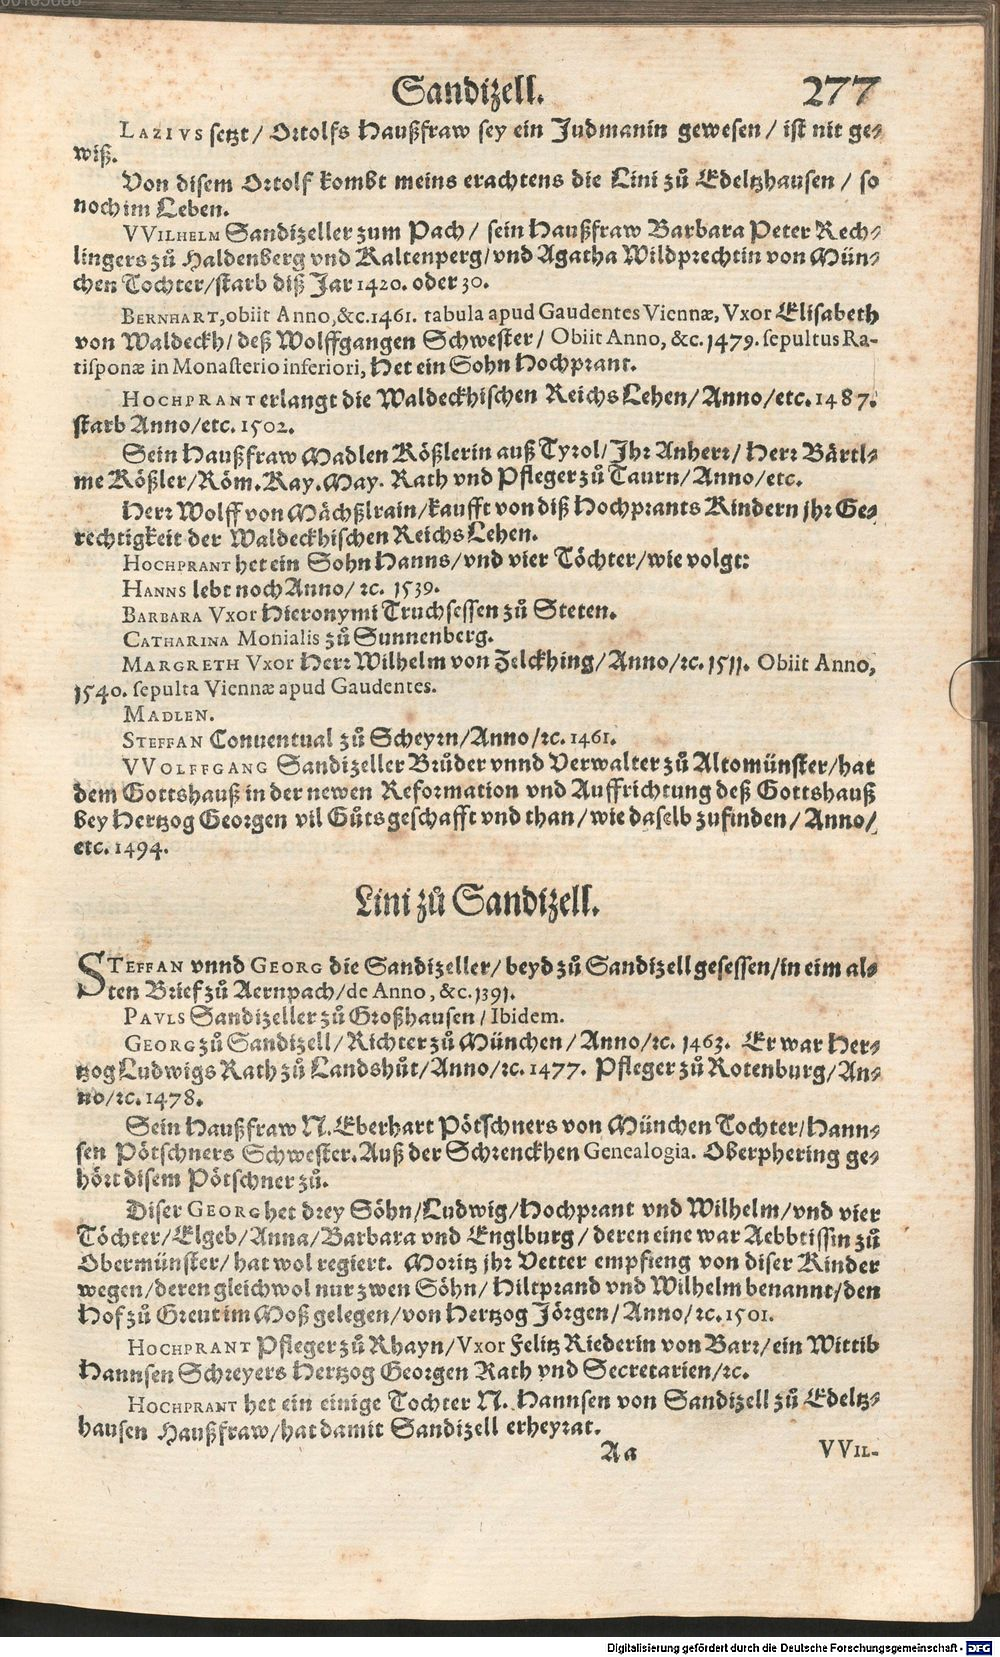 Sandizell. 277
LAZIVS setzt / Ortolfs Haußfraw sey ein Judmanin gewesen / ist nit ge-
wiß.
Von disem Ortolf kombt meins erachtens die Lini zů Edeltzhausen / so
noch im Leben.
VVILHELM Sandizeller zum Pach / sein Haußfraw Barbara Peter Rech-
lingers zů Haldenberg vnd Kaltenperg / vnd Agatha Wildprechtin von Mün-
chen Tochter / starb diß Jar 1420. oder 30.
BERNHART, obiit Anno, &c. 1461. tabula apud Gaudentes Viennæ, Vxor Elisabeth
von Waldeckh / deß Wolffgangen Schwester / Obiit Anno, &c. 1479. sepultus Ra-
tisponæ in Monasterio inferiori, Het ein Sohn Hochprant.
HOCHPRANT erlangt die Waldeckhischen Reichs Lehen / Anno / etc. 1487.
starb Anno / etc. 1502.
Sein Haußfraw Madlen Rößlerin auß Tyrol / Ihr Anherr / Herr Bärtl-
me Rößler / Röm. Kay. May. Rath vnd Pfleger zů Taurn / Anno / etc.
Herr Wolff von Mächßlrain / kaufft von diß Hochprants Kindern jhr Ge-
rechtigkeit der Waldeckhischen Reichs Lehen.
HOCHPRANT het ein Sohn Hanns / vnd vier Töchter / wie volgt:
HANNS lebt noch Anno / ꝛc. 1539.
BARBARA Vxor Hieronymi Truchsessen zů Steten.
CATHARINA Monialis zů Sunnenberg.
MARGRETH Vxor Herr Wilhelm von Zelckhing / Anno / ꝛc. 1511. Obiit Anno,
1540. sepulta Viennæ apud Gaudentes.
MADLEN.
STEFFAN Conuentual zů Scheyrn / Anno / ꝛc. 1461.
VVOLFFGANG Sandizeller Brůder vnnd Verwalter zů Altomünster / hat
dem Gottshauß in der newen Reformation vnd Auffrichtung deß Gottshauß
bey Hertzog Georgen vil Gůts geschafft vnd than / wie daselb zufinden / Anno /
etc. 1494.
Lini zů Sandizell.
STEFFAN vnnd GEORG die Sandizeller / beyd zů Sandizell gesessen / in eim al-
ten Brief zů Aernpach / de Anno, &c. 1391.
PAVLS Sandizeller zů Großhausen / Ibidem.
GEORG zů Sandizell / Richter zů München / Anno / ꝛc. 1463. Er war Her-
tzog Ludwigs Rath zů Landshůt / Anno / ꝛc. 1477. Pfleger zů Rotenburg / An-
no / ꝛc. 1478.
Sein Haußfraw N. Eberhart Pötschners von München Tochter / Hann-
sen Pötschners Schwester. Auß der Schrenckhen Genealogia. Oberphering ge-
hört disem Pötschner zů.
Diser GEORG het drey Söhn / Ludwig / Hochprant vnd Wilhelm / vnd vier
Töchter / Elgeb / Anna / Barbara vnd Englburg / deren eine war Aebbtissin zů
Obermünster / hat wol regiert. Moritz jhr Vetter empfieng von diser Kinder
wegen / deren gleichwol nur zwen Söhn / Hiltprand vnd Wilhelm benannt / den
Hof zů Greut im Moß gelegen / von Hertzog Jörgen / Anno / ꝛc. 1501.
HOCHPRANT Pfleger zů Rhayn / Vxor Felitz Riederin von Barr / ein Wittib
Hannsen Schreyers Hertzog Georgen Rath vnd Secretarien / ꝛc.
HOCHPRANT het ein einige Tochter N. Hannsen von Sandizell zů Edeltz-
hausen Haußfraw / hat damit Sandizell erheyrat.
Aa VVIL-
Digitalisierung gefördert durch die Deutsche Forschungsgemeinschaft - DFG